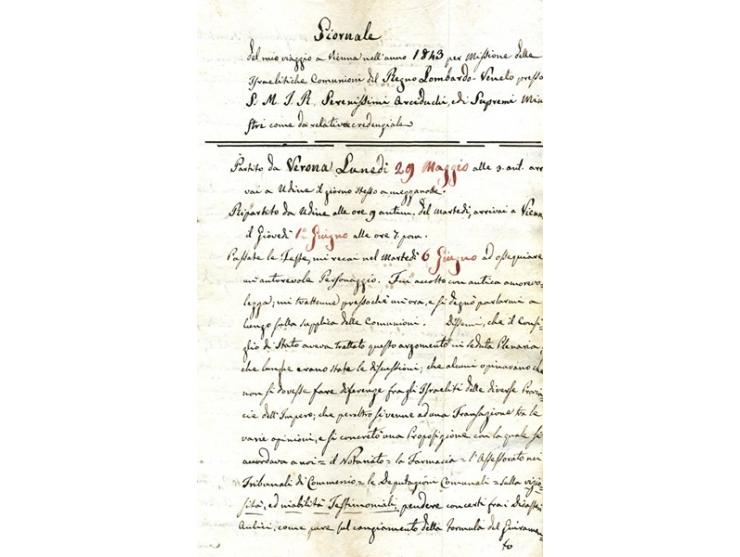 Giornale
del mio viaggio a Vienna nell'anno 1843 per Missione delle
Israelitiche Comunioni del Regno Lombardo-Veneto presso
S. M. I. R. Serenissimi Arciduchi, e di Supremi Mini
stri come da relativa credenziale
Partito da Verona Lunedì 29 Maggio alle 9. ant. arri
vai a Udine il giorno stesso a mezzanotte.
Ripartito da Udine alle ore 9 antim. del Martedì, arrivai a Vienna
il Giovedì 1º Giugno alle ore 7. pom.
Passate le Feste, mi recai nel Martedì 6 Giugno ad ossequiare
un'autorevole Personaggio. Fui accolto con antica amorevo-
lezza; mi trattenne pressochè un'ora, e si degnò parlarmi a
lungo sulla supplica delle Comunioni. Dissemi, che il Consi
glio di Stato aveva trattato questo argomento in seduta Plenaria;
che lunghe erano state le discussioni; che alcuni opinavano che
non si dovesse fare differenze fra gli Israeliti delle diverse Provin
cie dell'Impero; che peraltro si venne ad una Transazione tra le
varie opinioni, e si concretò una Proposizione con la quale si
accordava a noi = il Notariato = la Farmacia = l'Assessorato nei
Tribunali di Commercio = le Deputazioni Comunali = sulla
ed inabilità Testimoniali, pendere concerti fra i Dicasteri
Aulici, come pure sul cangiamento della formula del Giuramen
to